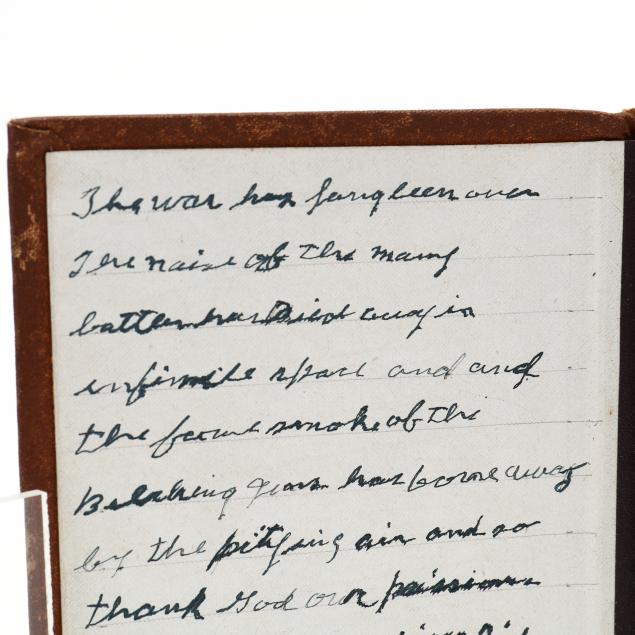 The war has long been over
The naise of the many
battles has Died away in
infinite space and and
the smoke of the
Belching guns has borne away
by the pitying air and so
thank God our passions